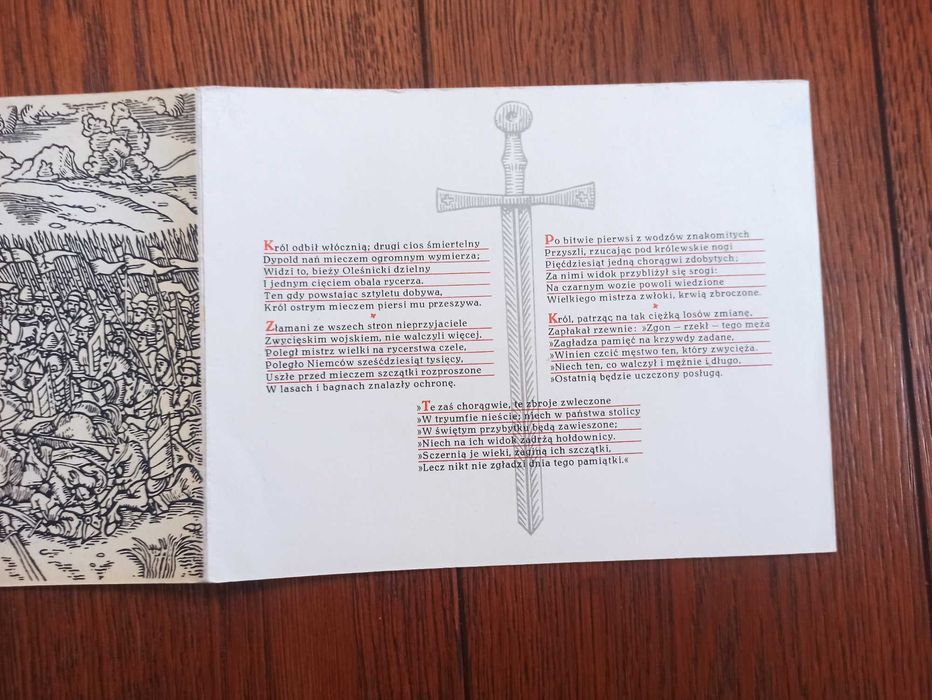 Król odbił włócznią; drugi cios śmiertelny
Dypold nań mieczem ogromnym wymierza;
Widzi to, bieży Oleśnicki dzielny
I jednym cięciem obala rycerza.
Ten gdy powstając sztyletu dobywa,
Król ostrym mieczem piersi mu przeszywa.
Złamani ze wszech stron nieprzyjaciele
Zwycięskim wojskiem, nie walczyli więcej.
Poległ mistrz wielki na rycerstwa czele,
Poległo Niemców sześćdziesiąt tysięcy,
Uszłe przed mieczem szczątki rozproszone
W lasach i bagnach znalazły ochronę.
Po bitwie pierwsi z wodzów znakomitych
Przyszli, rzucając pod królewskie nogi
Pięćdziesiąt jedną chorągwi zdobytych;
Za nimi widok przybliżył się srogi:
Na czarnym wozie powoli wiedzione
Wielkiego mistrza zwłoki, krwią zbroczone.
Król, patrząc na tak ciężką losów zmianę,
Zapłakał rzewnie: »Zgon — rzekł — tego męża
»Zagładza pamięć na krzywdy zadane,
»Winien czcić męstwo ten, który zwycięża.
»Niech ten, co walczył i mężnie i długo,
»Ostatnią będzie uczczony posługą.
»Te zaś chorągwie, te zbroje zwleczone
»W tryumfie nieście; niech w państwa stolicy
»W świętym przybytku będą zawieszone;
»Niech na ich widok zadrżą hołdownicy.
»Sczernią je wieki, zaginą ich szczątki,
»Lecz nikt nie zgładzi dnia tego pamiątki.«